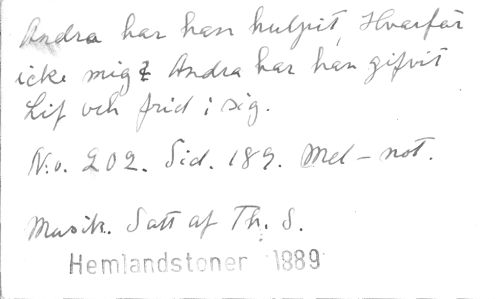 Andra har han hulpit, Hvarför
icke mig? Andra har han gifvit
Lif och frid i sig.
N:o. 202. Sid. 189. Mel-not.
Musik. Satt af Th. S.
Hemlandstoner 1889